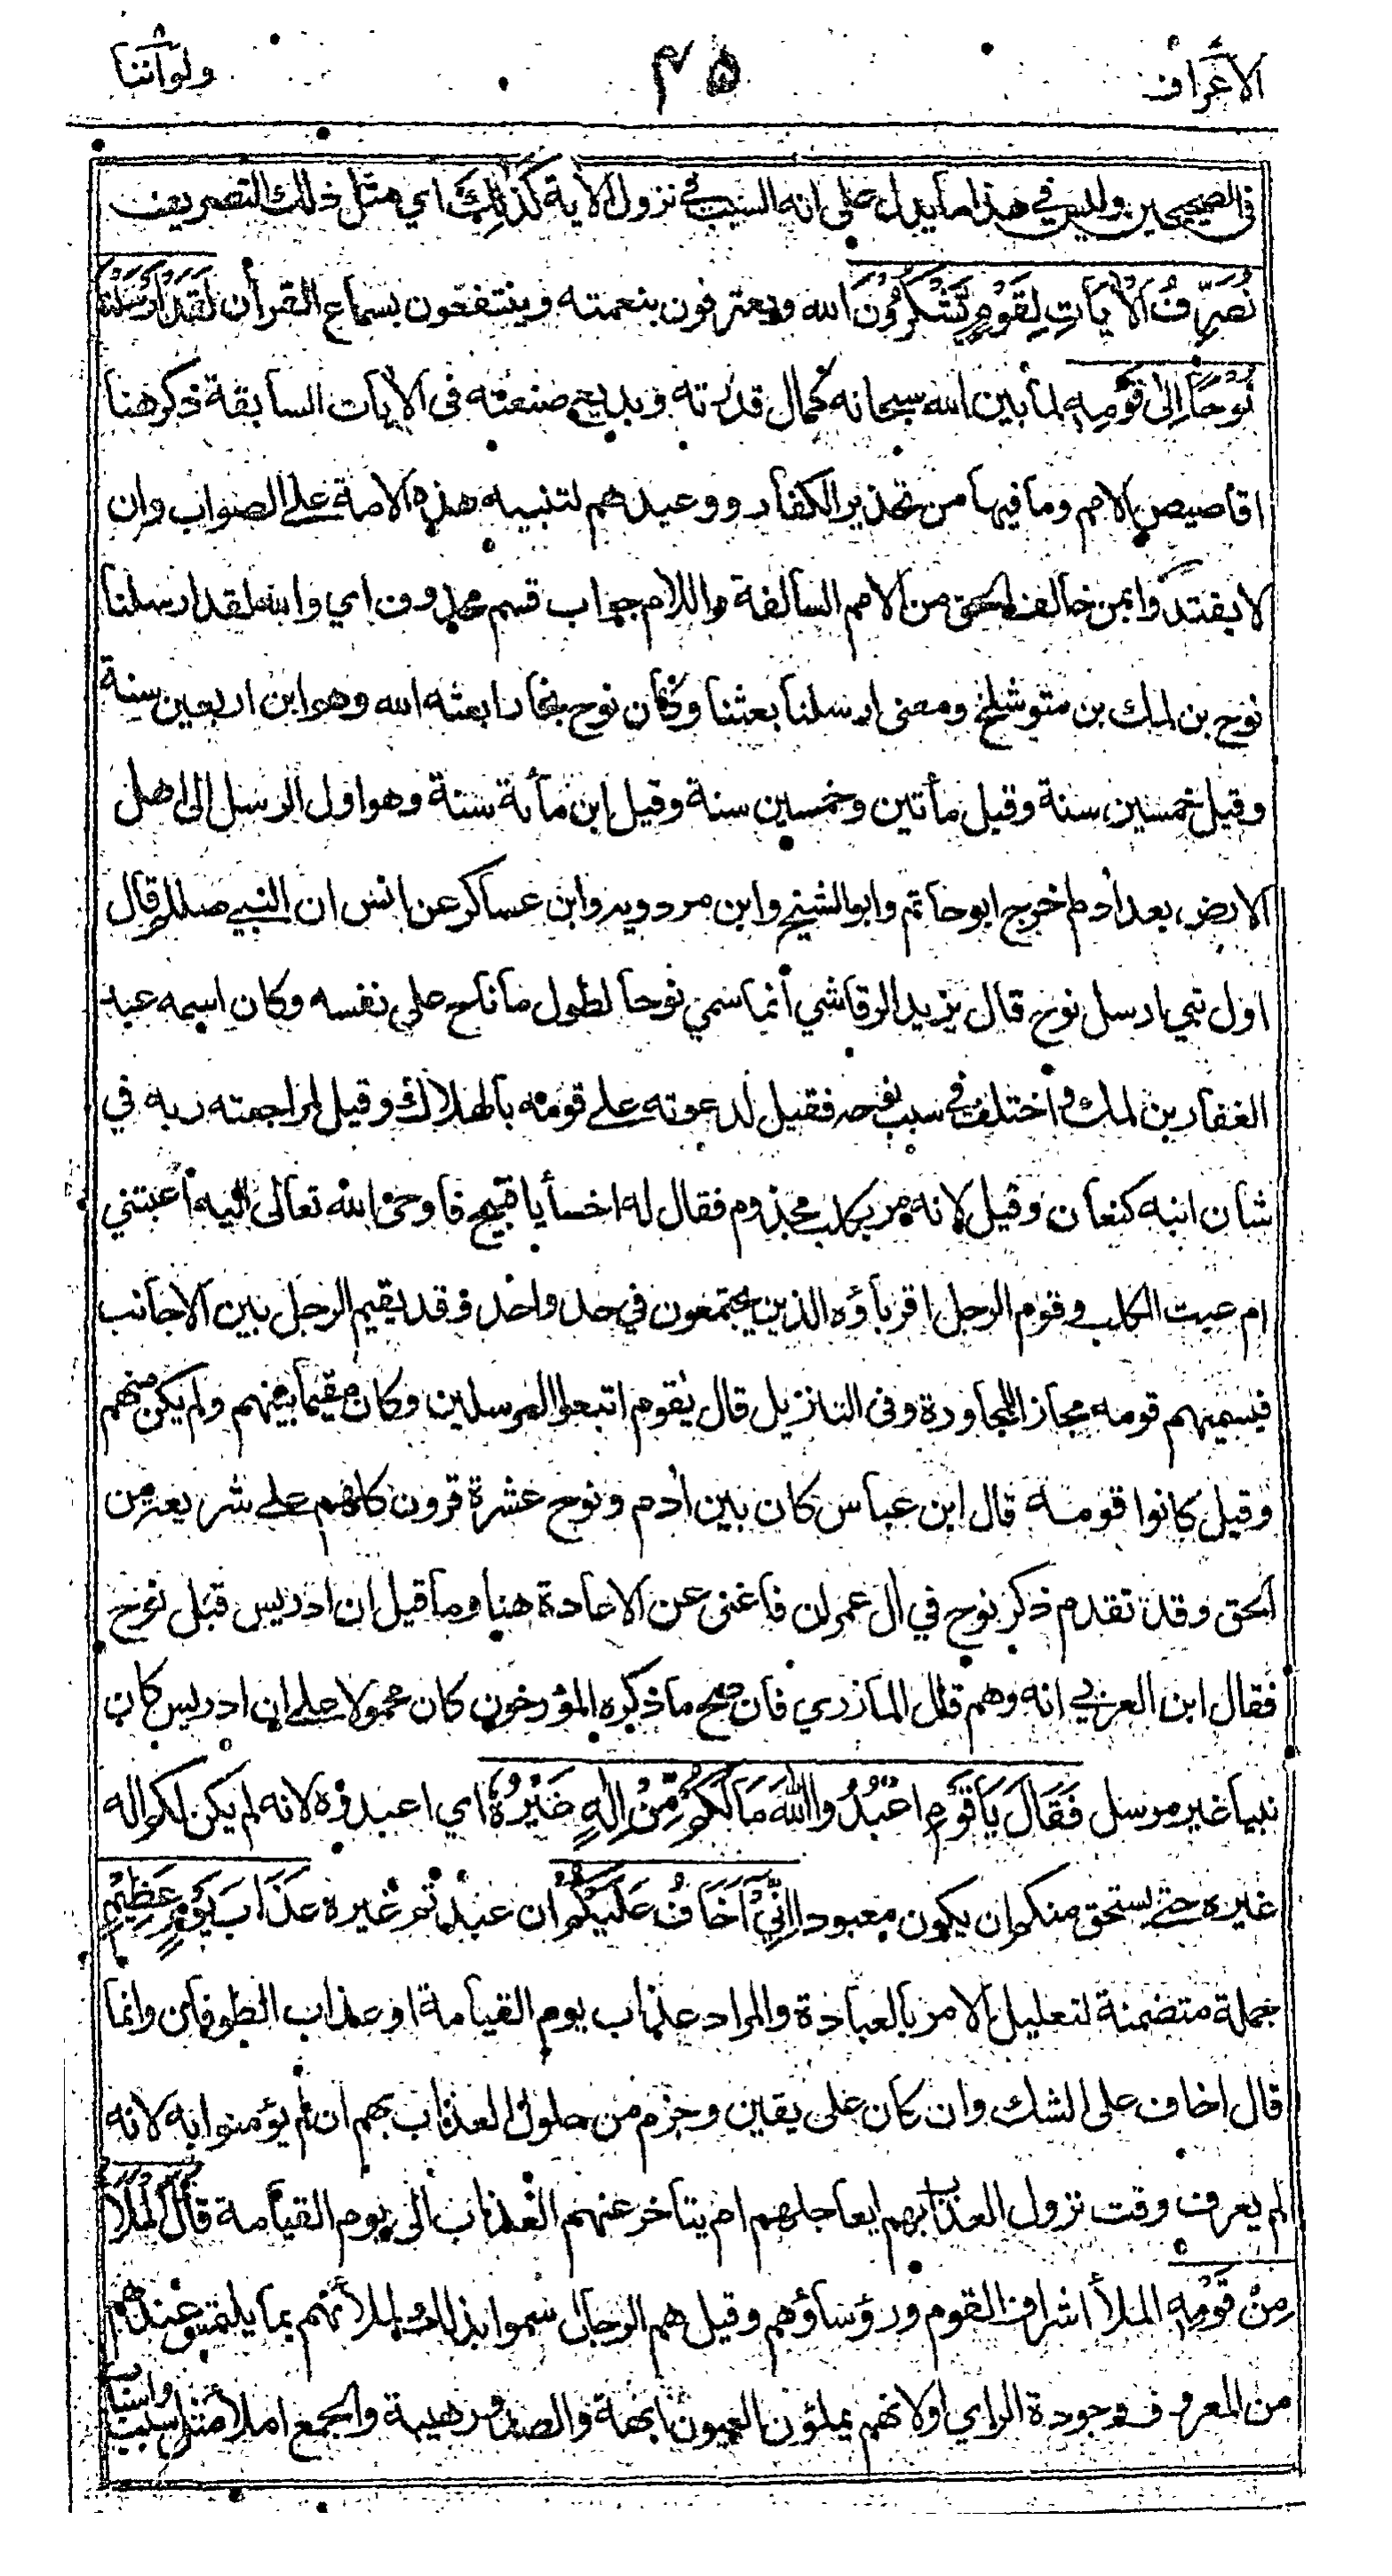 الاعراف ٤٥ ولواننا
في الصحيحين وليس في هذا ما يدل على انه السبب في نزول الاية كَذٰلِكَ اي مثل ذلك التصريف
نُصَرِّفُ الْاٰيَاتِ لِقَوْمٍ يَّشْكُرُوْنَ الله ويعترفون بنعمته وينتفعون بسماع القرآن لَقَدْ اَرْسَلْنَا
نُوْحًا اِلٰى قَوْمِهٖ لما بين الله سبحانه كمال قدرته وبديع صنعته في الأيات السابقة ذكر هنا
اقاصيص الامم وما فيها من تحذير الكفار ووعيدهم لتنبيه هذه الامة على الصواب وان
لا يقتدوا بمن خالف الحق من الامم السالفة واللام جواب قسم محذوف اي والله لقد ارسلنا
نوح بن لمك بن متوشلخ ومعنى ارسلنا بعثنا وكان نوح نجارا بعثه الله وهو ابن اربعين سنة
وقيل خمسين سنة وقيل مأتين وخمسين سنة وقيل ابن مأئة سنة وهو اول الرسل الى اهل
الارض بعد أدم اخرج ابو حاتم وابو الشيخ وابن مردويه وابن عساكر عن انس ان النبي صللم قال
اول نبي ارسل نوح قال يزيد الرقاشي أنما سمي نوحا لطول ما ناح على نفسه وكان اسمه عبد
الغفار بن لمك واختلف في سبب نوحه فقيل لدعوته على قومه بالهلاك وقيل لمراجعته ربه في
شان ابنه كنعان وقيل لانه مر بكلب مجذوم فقال له اخسأ يا قبيح فاوحى الله تعالى اليه أعبتني
ام عبت الكلب وقوم الرجل اقرباؤه الذين يجتمعون في جد واحد وقد يقيم الرجل بين الاجانب
فيسميهم قومه مجازا للمجاورة وفى التنزيل قال يٰقوم اتبعوا المرسلين وكان مقيما بينهم ولم يكن منهم
وقيل كانوا قومه قال ابن عباس كان بين أدم ونوح عشرة قرون كلهم على شريعة من
الحق وقد تقدم ذكر نوح في ال عمران فاغنى عن الاعادة هنا وما قيل ان ادريس قبل نوح
فقال ابن العربي انه وهم قال المازري فان صح ما ذكره المؤرخون كان محمولا على ان ادريس كان
نبيا غير مرسل فَقَالَ يَا قَوْمِ اعْبُدُوا اللّٰهَ مَا لَكُمْ مِّنْ اِلٰهٍ غَيْرُهٗ اي اعبدوه لانه لم يكن لكم اله
غيره حتى يستحق منكم ان يكون معبودا اِنِّيْ اَخَافُ عَلَيْكُمْ ان عبدتم غيره عَذَابَ يَوْمٍ عَظِيْمٍ
جملة متضمنة لتعليل الامر بالعبادة والمراد عذاب يوم القيامة او عذاب الطوفان وانما
قال اخاف على الشك وان كان على يقين وجزم من حلول العذاب بهم ان لم يؤمنوا به لانه
لم يعرف وقت نزول العذاب بهم ايعاجلهم ام يتاخر عنهم العذاب الى يوم القيامة قَالَ الْمَلَأُ
مِنْ قَوْمِهٖ الملأ اشراف القوم ورؤساؤهم وقيل هم الرجال سموا بذلك لملأنهم بما يلتمس عندهم
من المعروف وجودة الراي اولانهم يملؤن العيون ابهة والصدور هيبة والجمع املأ مثل سبب واسباب